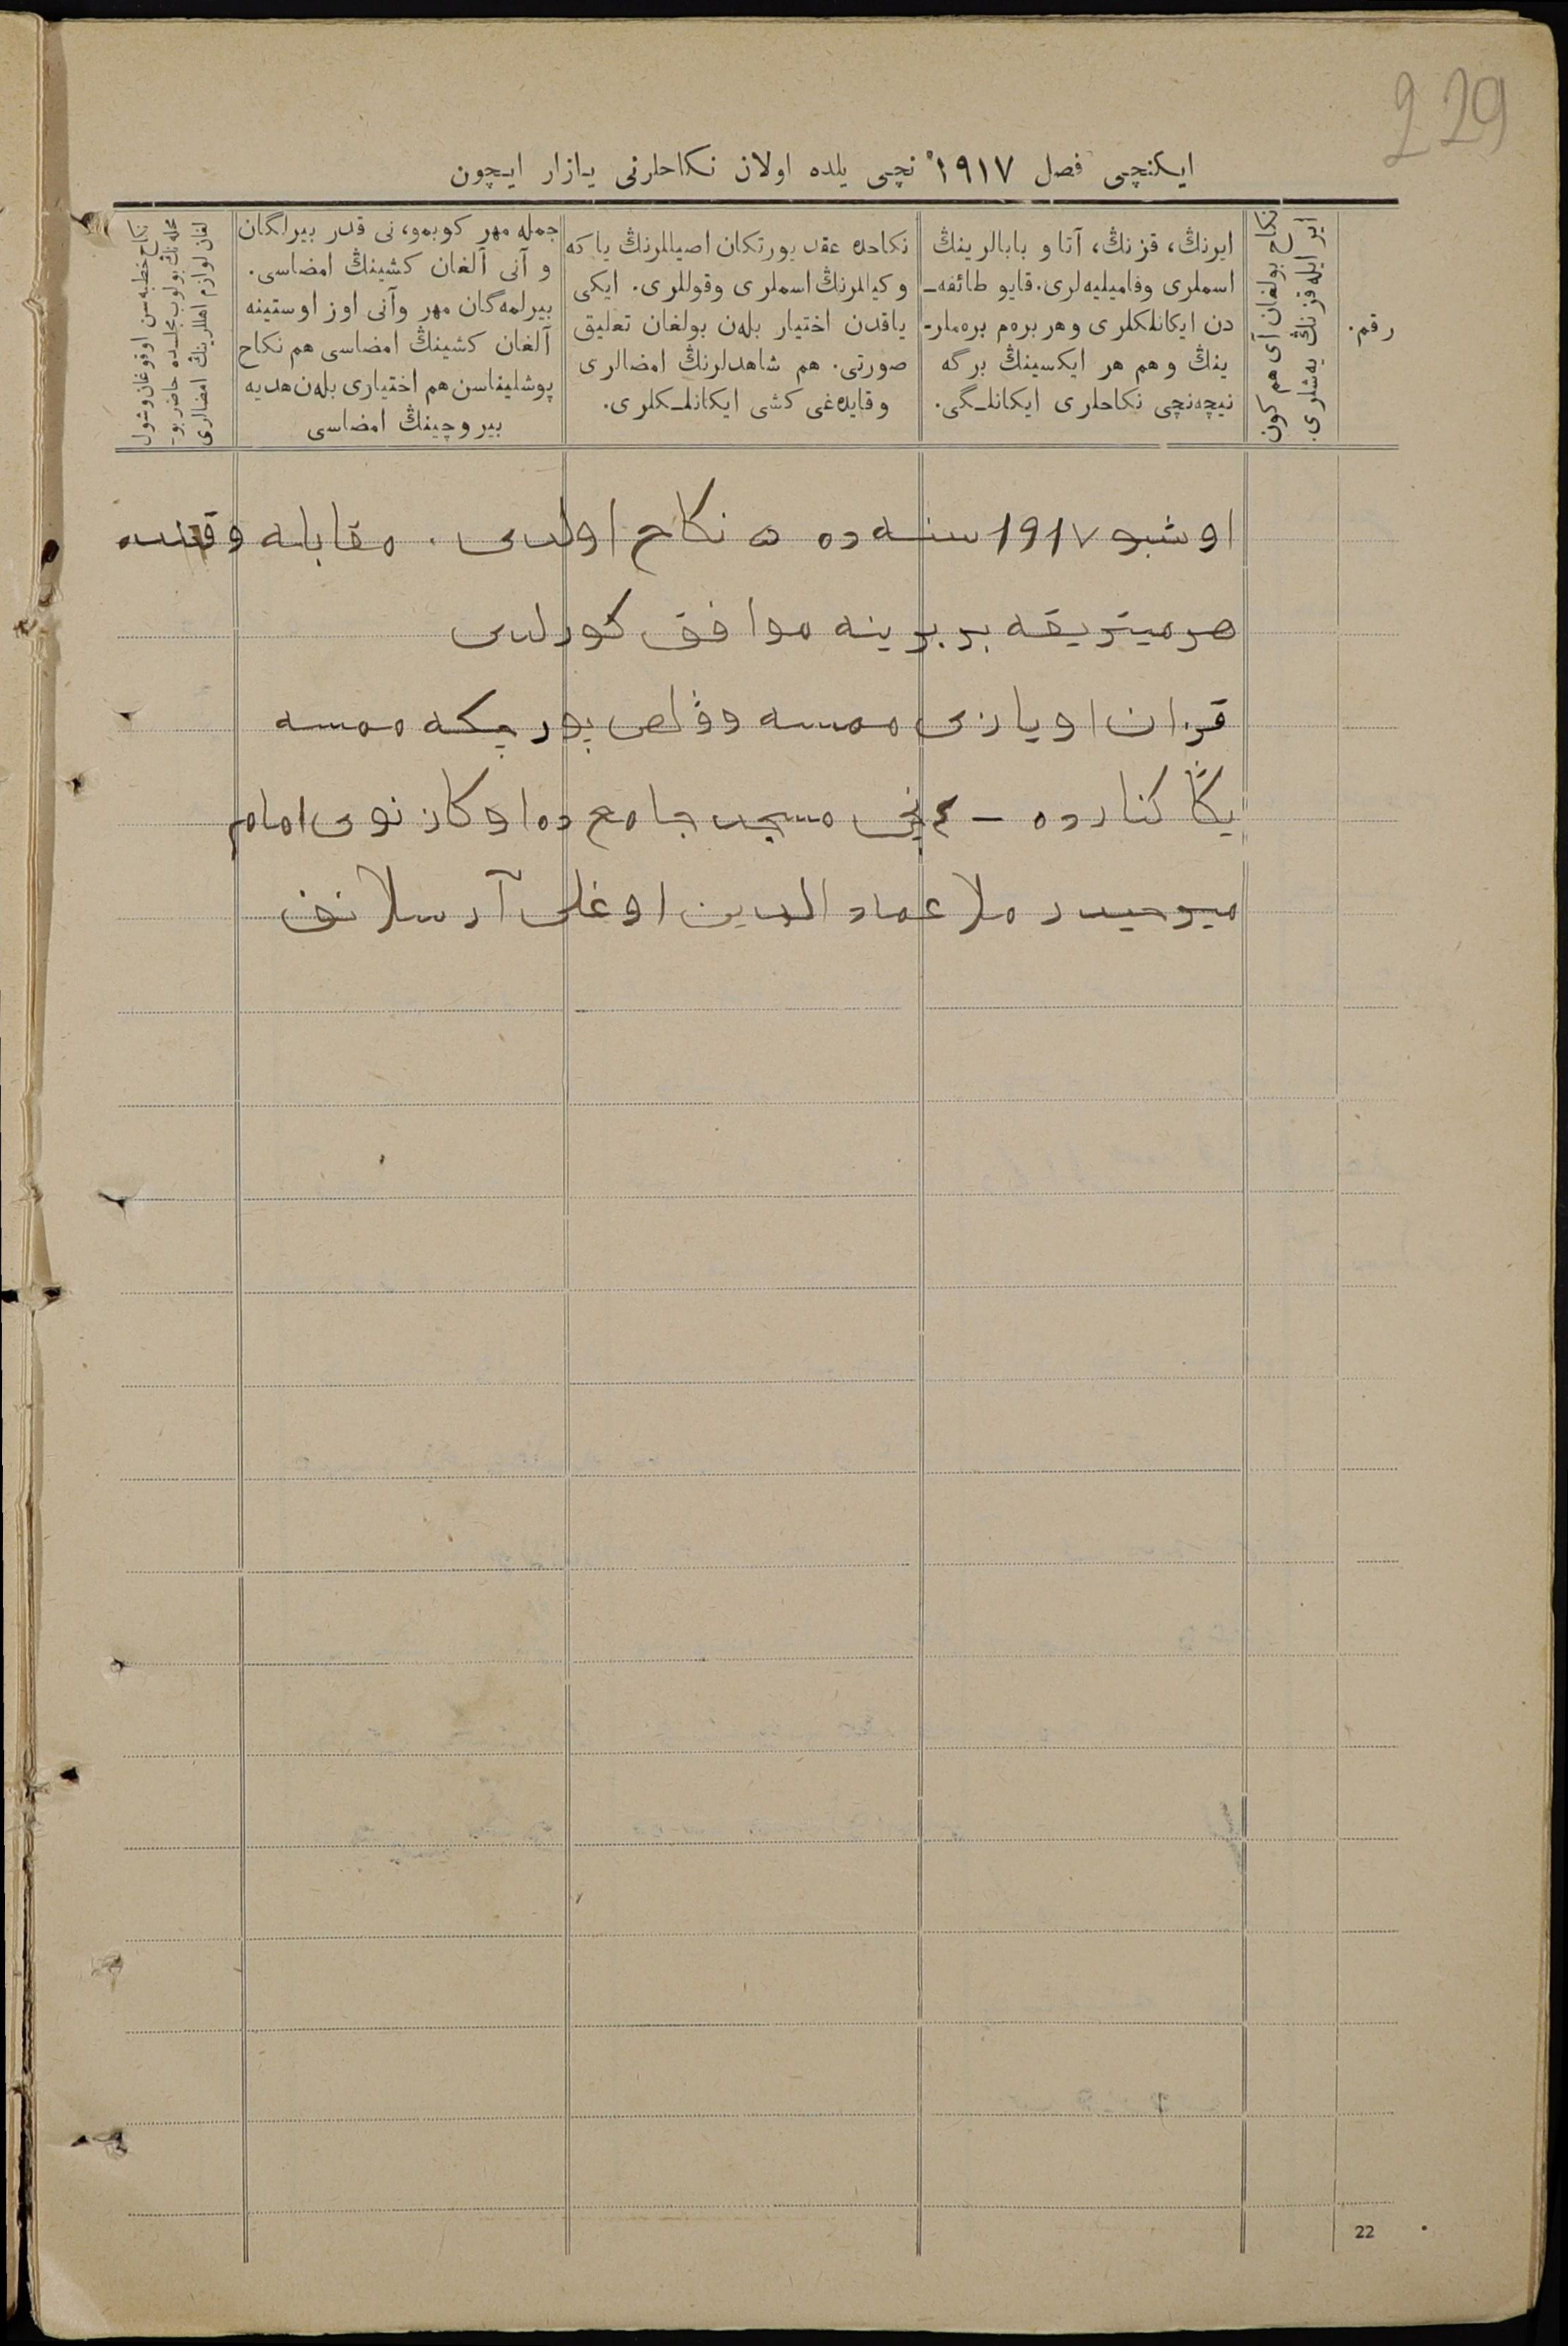 229
ایکنچی فصل ١٩١٧ نچی یلده اولان نکاحلرنی یازار ایچون
رقم.
ایر ایله قز نڭ یه‌شلری.
نکاح بولغان آی هم کون
ایرنڭ، قز نڭ، آتا و بابالرینڭ
اسملری وفامیلیه‌لری. قایو طائفه‌ـ
دن ایکانلکلری و هر بره‌م بره‌ملرـ
ینڭ و هم هر ایکسینڭ برگه
نیچه‌نچی نکاحلری ایکانلـگی.
نکاحده عقد یورتکان اصیللرنڭ یا که
و کیللرنڭ اسملری وقوللری. ایکی
یاقدن اختیار بله‌ن بولغان تعلیق
صورتی. هم شاهدلرنڭ امضالری
و قایده‌غی کشی ایکانلـکلری.
جمله مهر کوبمو، نی قدر بیرلگان
و آنی آلغان کشینڭ امضاسی.
بیرلمه‌گان مهر وآنی اوز اوستینه
آلغان کشینڭ امضاسی هم نکاح
پوشلیناسن هم اختیاری بله‌ن هدیه
بیر وچینڭ امضاسی
نکاح خطبه‌سن اوقوغان وشول
محله‌نڭ بولوب مجلسده حاضر بوـ
لغان لوازم اهللرینڭ امضالری
اوشبو ١٩١٧ سنه ده ۵ نکاح اولدی. مقابله وقتنده
هر میتریقه بر برینه موافق کورلدی
قزان اویازی ممسه وۋلصی یورچکه ممسه
یڭا کنارده – ٤ نچی مسجد جامع ده اوکازنوی امام
میرحیدر ملا عماد الدین اوغلی آرسلانف
22